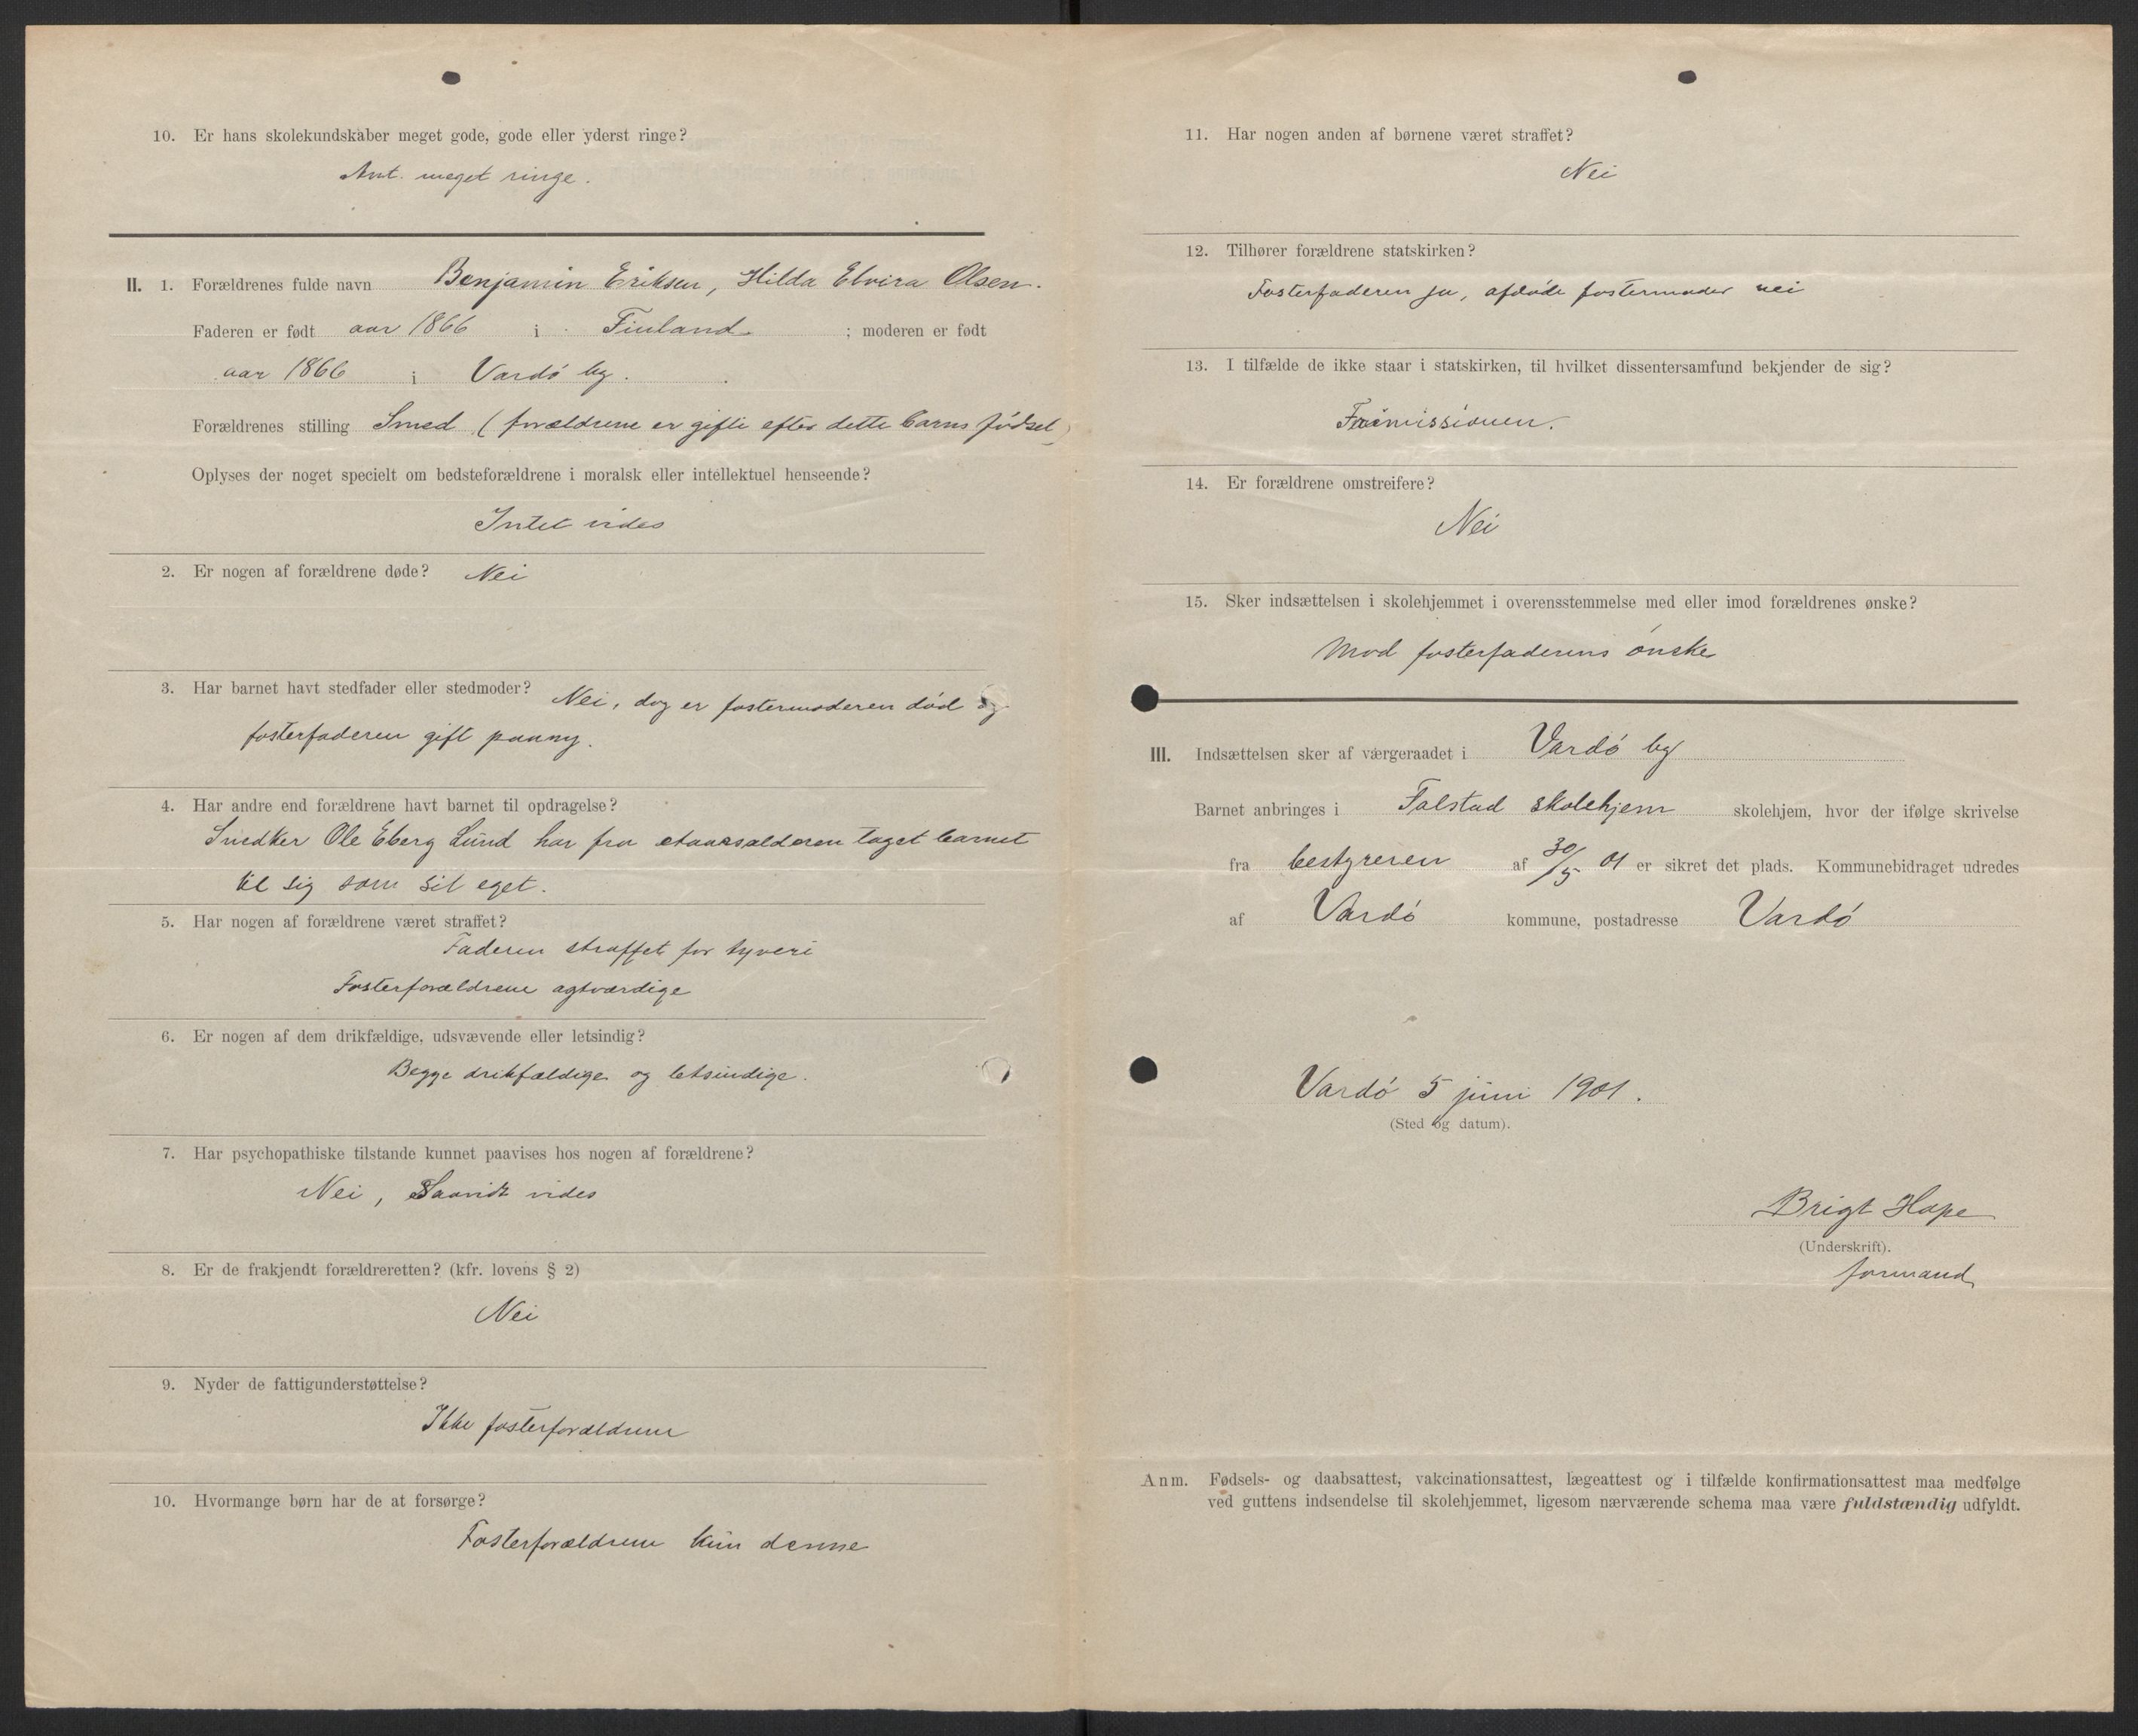 10. Er hans skolekundskaber meget gode, gode eller yderst ringe?
Ant. meget ringe.
II. 1. Forældrenes fulde navn Benjamin Eriksen, Hilda Elvira Olsen.
Faderen er født aar 1866 i Finland ; moderen er født
aar 1866 i Vardö by.
Forældrenes stilling Smed (forældrene er gifte efter dette barns födsel)
Oplyses der noget specielt om bedsteforældrene i moralsk eller intellektuel henseende?
Intet vides
2. Er nogen af forældrene døde? Nei
3. Har barnet havt stedfader eller stedmoder? Nei, dog er fostermoderen död og
fosterfaderen gift paany.
4. Har andre end forældrene havt barnet til opdragelse?
Snedker Ole Eberg Lund har fra etaarsalderen taget barnet
til sig som sit eget.
5. Har nogen af forældrene været straffet?
Faderen straffet for tyveri
Fosterforældrene agtværdige
6. Er nogen af dem drikfældige, udsvævende eller letsindig?
Begge drikfældige og letsindige.
7. Har psychopathiske tilstande kunnet paavises hos nogen af forældrene?
Nei, Saavidt vides
8. Er de frakjendt forældreretten? (kfr. lovens § 2)
Nei
9. Nyder de fattigunderstøttelse?
Ikke fosterforældrene
10. Hvormange børn har de at forsørge?
Fosterforældrene kun denne
11. Har nogen anden af børnene været straffet?
Nei
12. Tilhører forældrene statskirken?
Fosterfaderen ja, afdöde fostermoder nei
13. I tilfælde de ikke staar i statskirken, til hvilket dissentersamfund bekjender de sig?
Frimissionen.
14. Er forældrene omstreifere?
Nei
15. Sker indsættelsen i skolehjemmet i overensstemmelse med eller imod forældrenes ønske?
Mod fosterfaderens önske
III. Indsættelsen sker af værgeraadet i Vardö by
Barnet anbringes i Falstad skolehjem skolehjem, hvor der ifølge skrivelse
fra bestyreren af 30/5 01 er sikret det plads. Kommunebidraget udredes
af Vardö kommune, postadresse Vardö
Vardö 5 juni 1901.
(Sted og datum).
Brigt Hope
(Underskrift).
formand
Anm. Fødsels- og daabsattest, vakcinationsattest, lægeattest og i tilfælde konfirmationsattest maa medfølge
ved guttens indsendelse til skolehjemmet, ligesom nærværende schema maa være fuldstændig udfyldt.